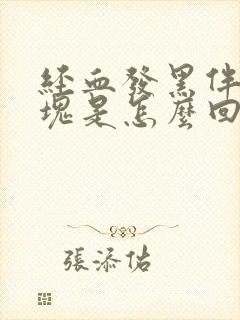 經血發黑伴
塊是怎麼回
張添佑